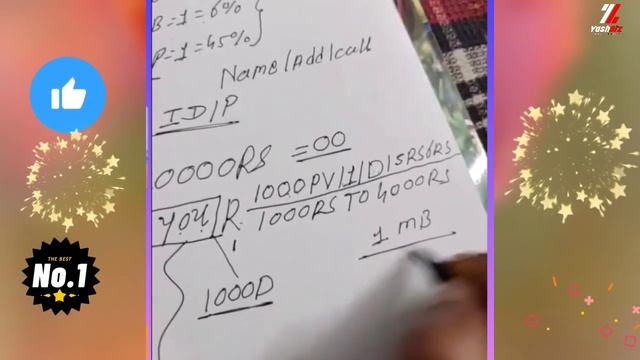 B=1=6%
P=1=45%
Name/Add/call
ID/P
0000RS =00
1000PV/1/D/5RS6RS
YOU R 1000RS TO 4000RS
1 MB
1000D
THE BEST
No.1
YashBiz